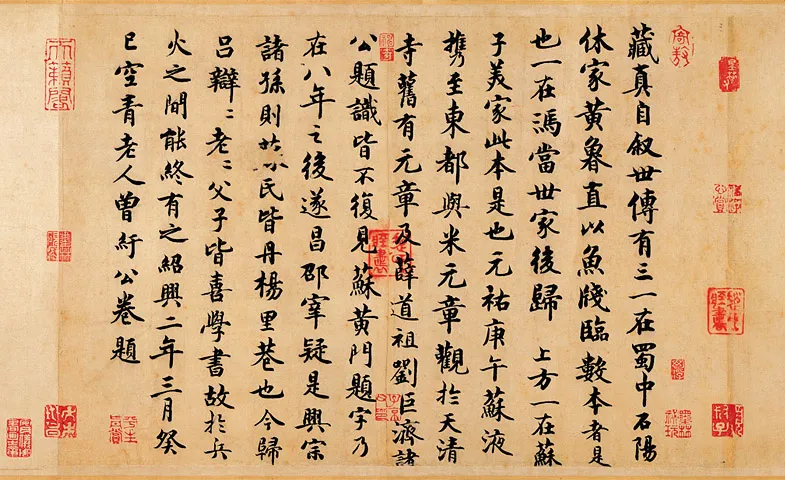 藏真自叙世傳有三一在蜀中石陽
休家黄魯直以魚牋臨數本者是
也一在馮當世家後歸 上方一在蘇
子美家此本是也元祐庚午蘇液
携至東都與米元章觀於天清
寺舊有元章及薛道祖劉巨濟諸
公題識皆不復見蘇黄門題字乃
在八年之後遂昌邵宰疑是興宗
諸孫則 民皆丹楊里巷也今歸
吕辯〻老〻父子皆喜學書故於兵
火之間能終有之紹興二年三月癸
巳空青老人曾紆公卷題